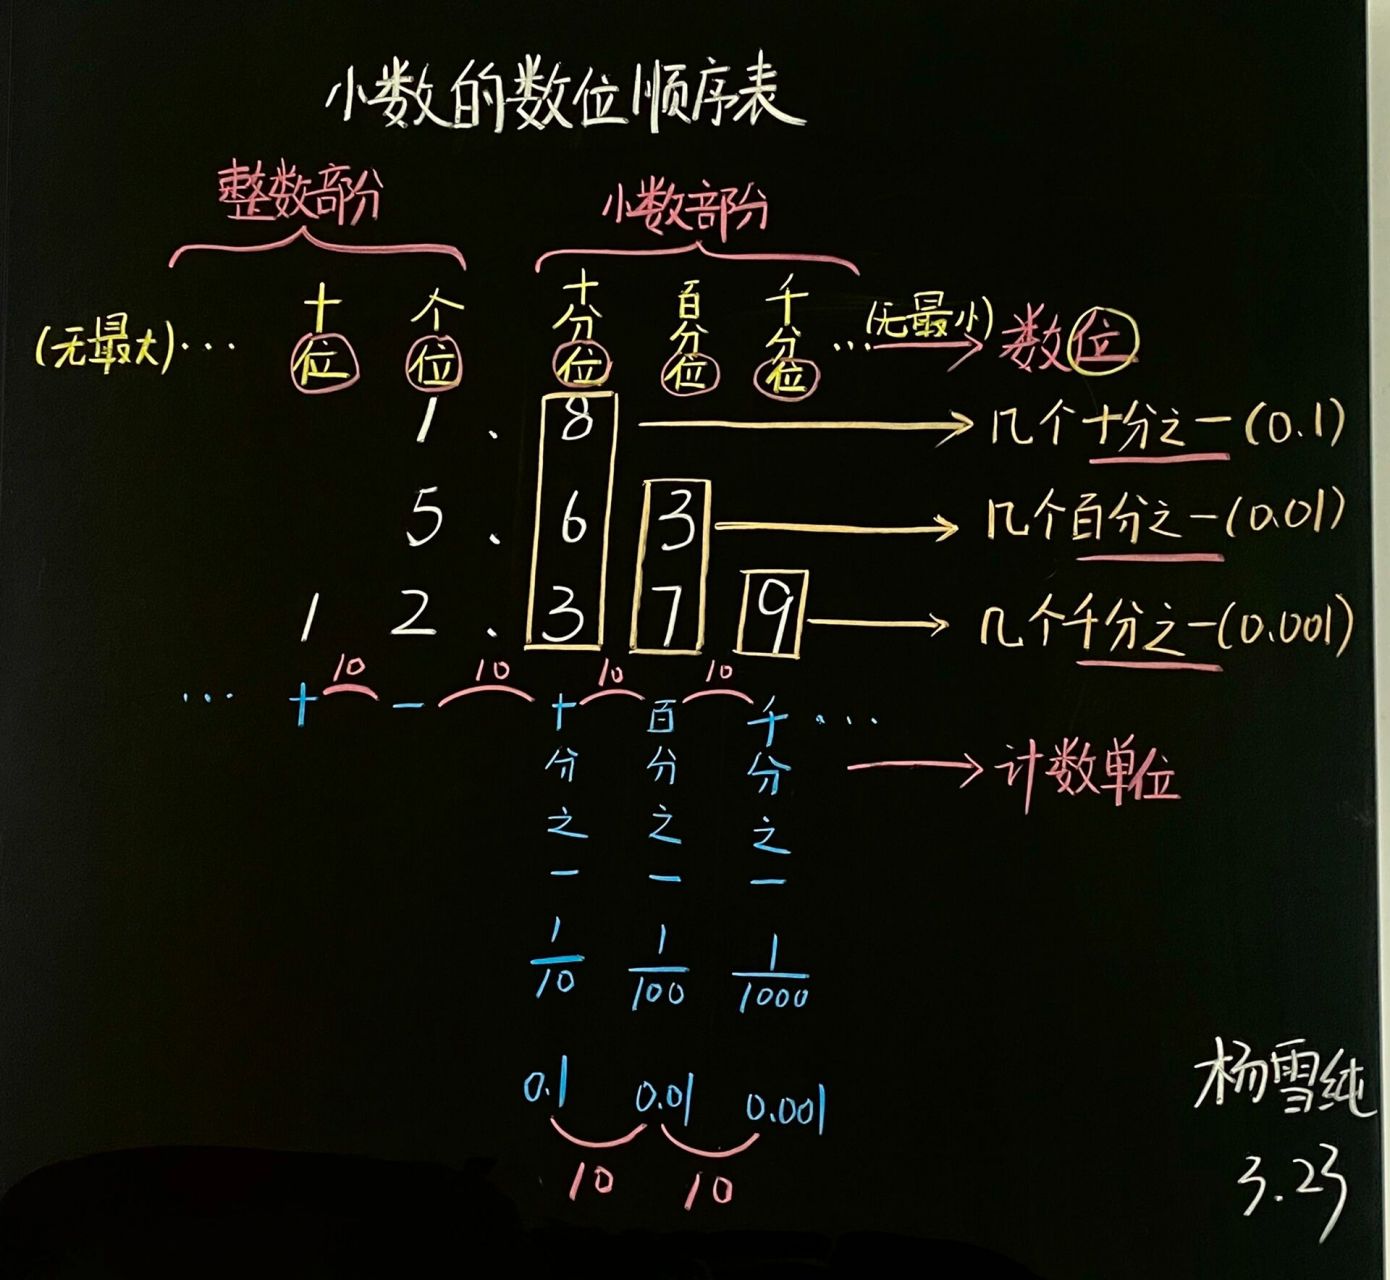 小数的数位顺序表
整数部分 小数部分
(无最大)··· 十位 个位 十分位 百分位 千分位 ···(无最小) 数位
1 . 8 几个十分之一(0.1)
5 . 6 3 几个百分之一(0.01)
1 2 . 3 7 9 几个千分之一(0.001)
10 10 10 10
··· 十 一 十分之一 百分之一 千分之一 ···
计数单位
1/10 1/100 1/1000
0.1 0.01 0.001
10 10
杨雪纯
3.23